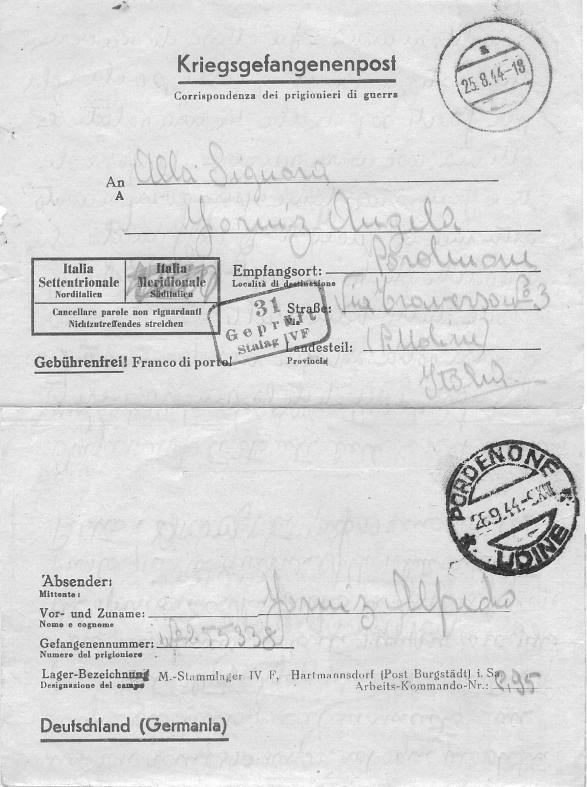 Kriegsgefangenenpost
Corrispondenza dei prigionieri di guerra
a
25.8.44.-18
An Alla Signora
A
Angela
Italia Settentrionale Norditalien
Italia Meridionale Süditalien
Cancellare parole non riguardanti
Nichtzutreffendes streichen
Empfangsort:
Località di destinazione
Straße: Via 3
Via
Landesteil: (Udine)
Provincia
Italia
31
Geprüft
Stalag IVF
Gebührenfrei! Franco di porto!
PORDENONE
26.9.44.-
UDINE
Absender:
Mittente:
Vor- und Zuname: Alfredo
Nome e cognome
Gefangenennummer: 255338
Numero del prigioniero
Lager-Bezeichnung M.-Stammlager IV F, Hartmannsdorf (Post Burgstädt) i. Sa.
Designazione del campo Arbeits-Kommando-Nr.:
Deutschland (Germania)